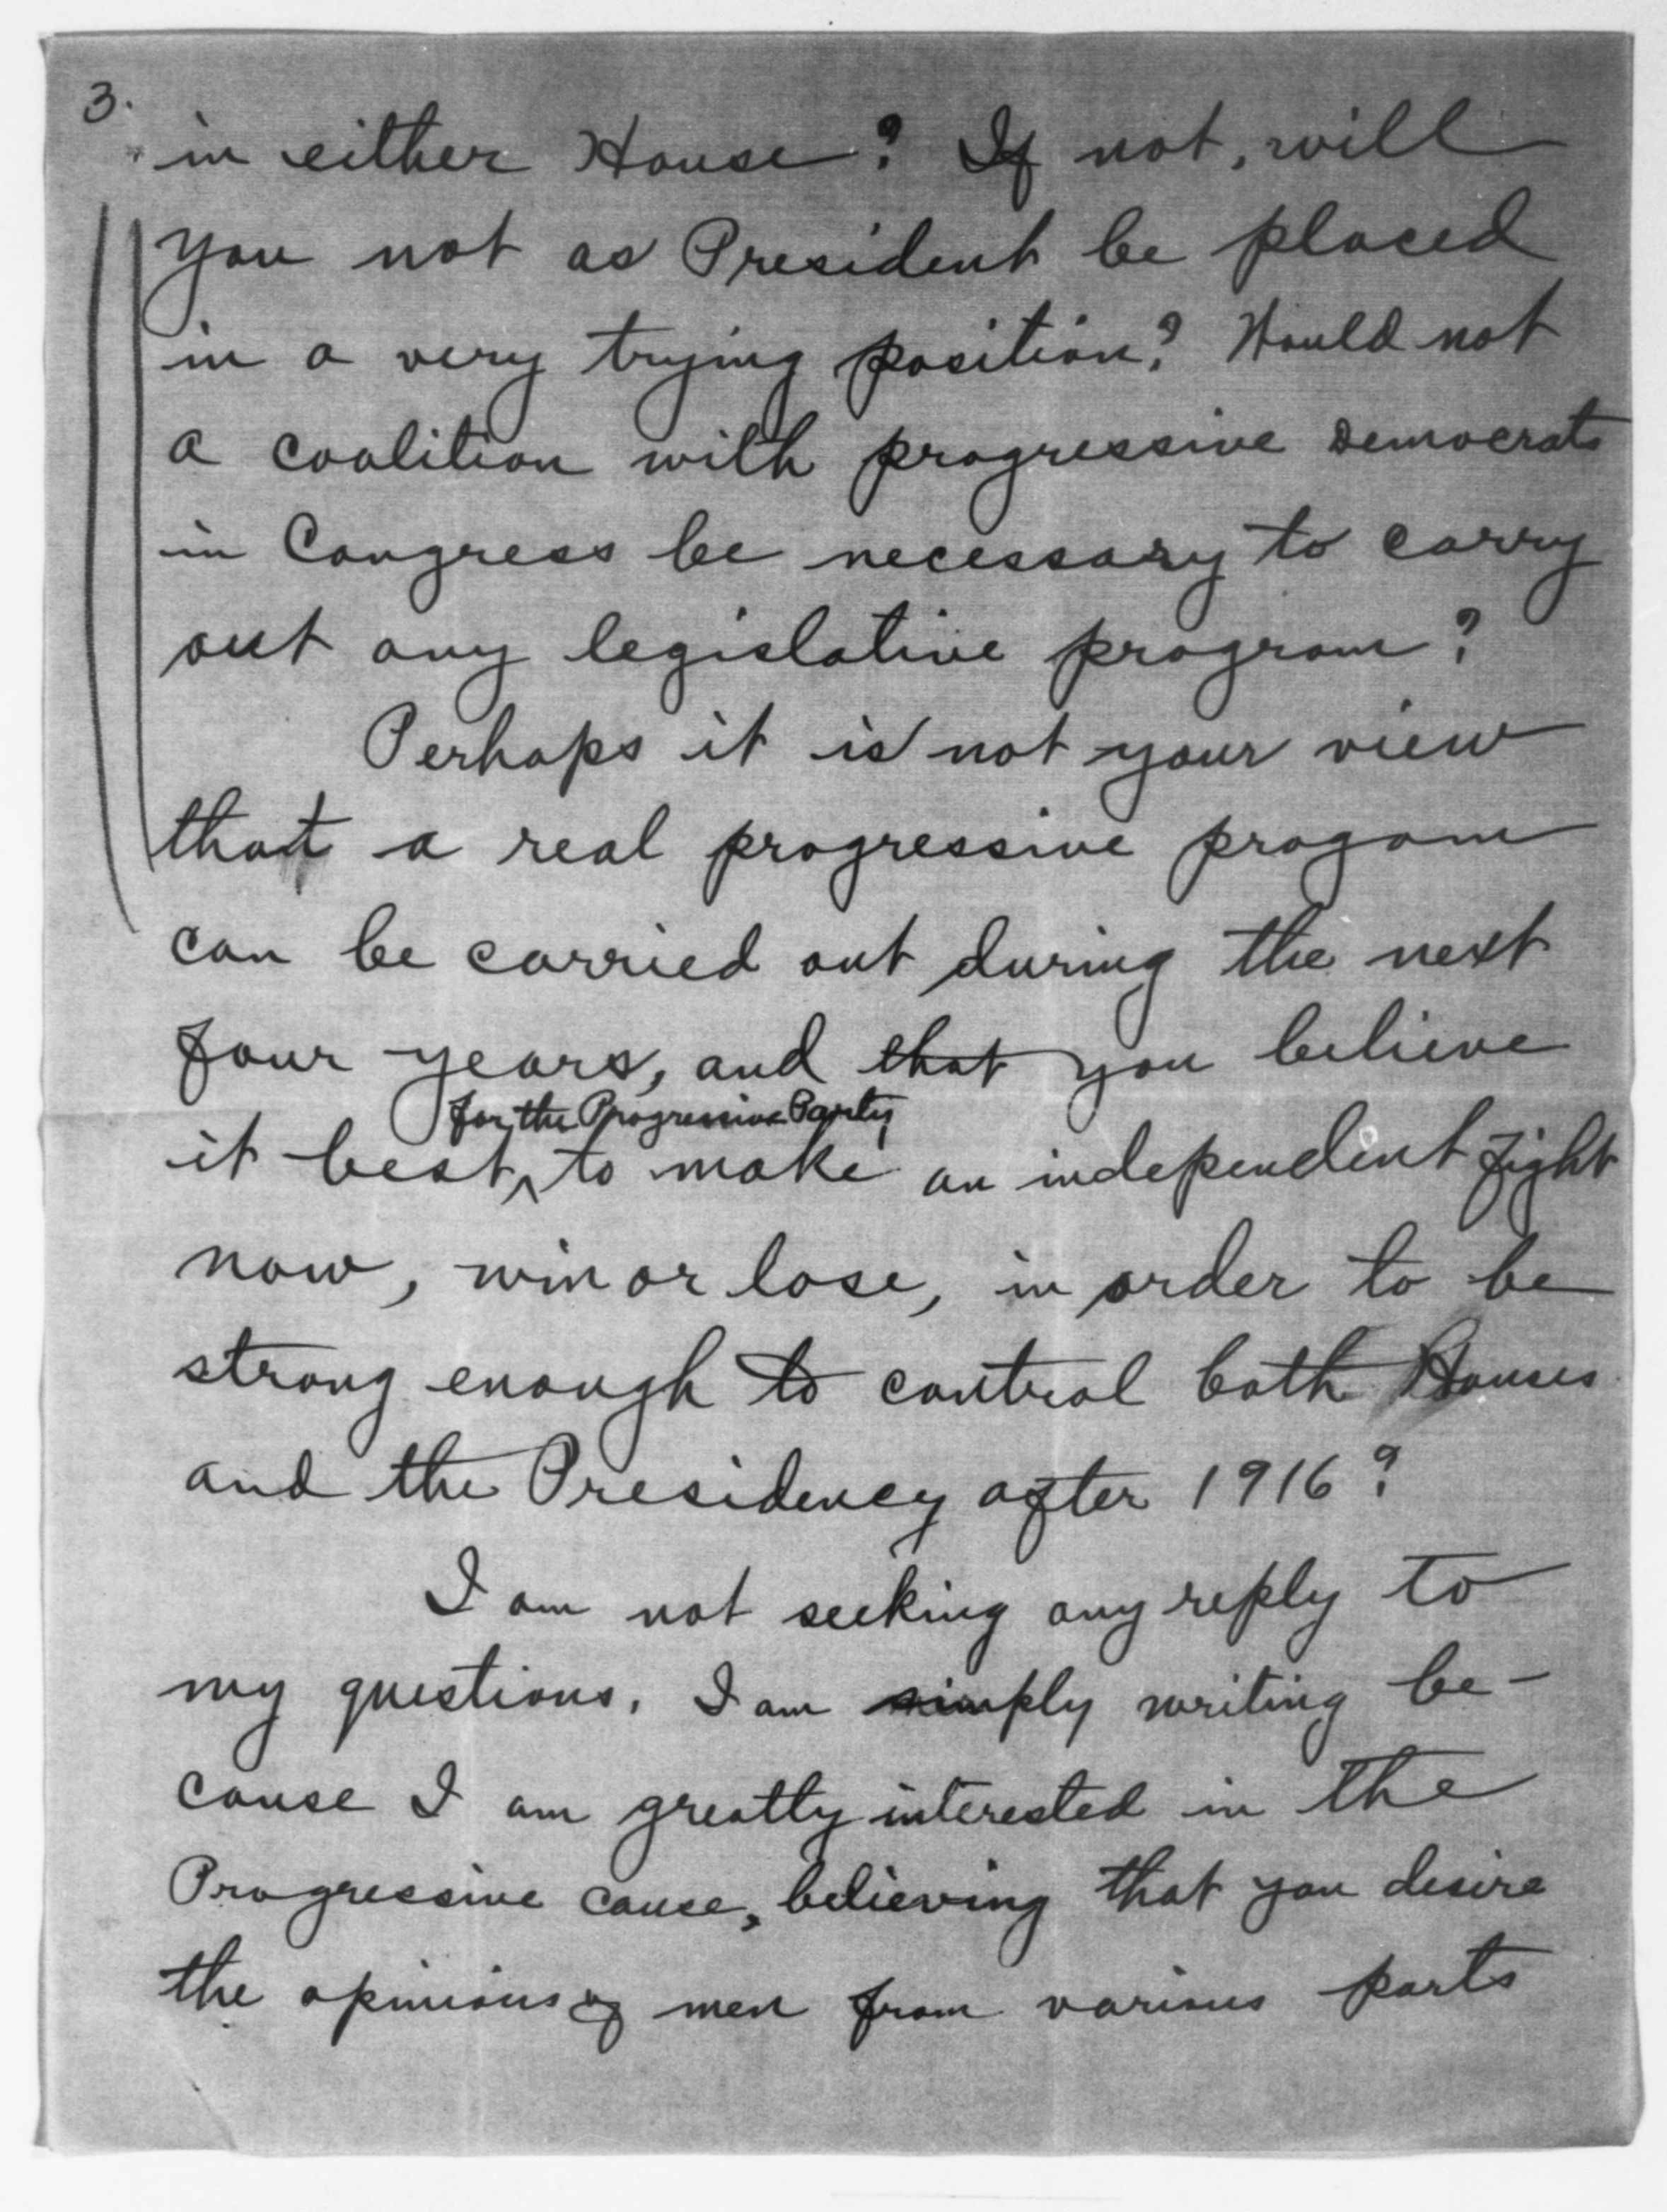 3.
in either House? If not, will
you not as President be placed
in a very trying position? Would not
a coalition with progressive Democrats
in Congress be necessary to carry
out any legislative program?
Perhaps it is not your view
that a real progressive progam
can be carried out during the next
four years, and that you believe
for the Progressive Party
it best, to make an independent fight
now, win or lose, in order to be
strong enough to control both Houses
and the Presidency after 1916?
I am not seeking any reply to
my questions. I am simply writing be-
cause I am greatly interested in the
Progressive cause, believing that you desire
the opinions of men from various parts